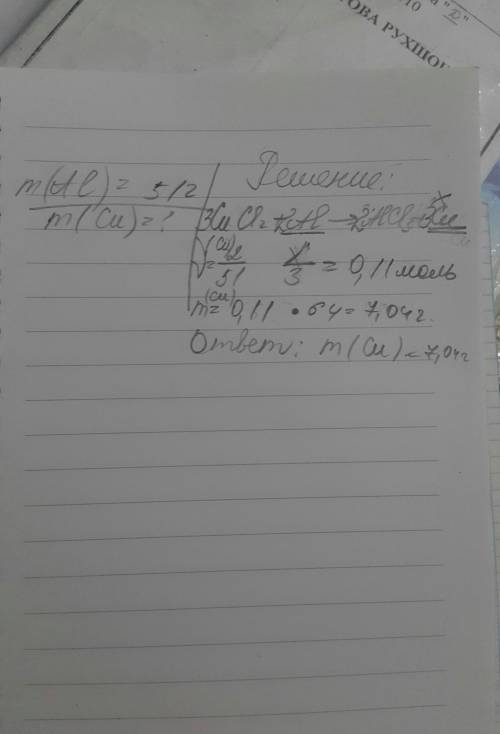 ОВА РУХШО
m(Al) = 51г
m(Cu) = ?
Решение:
3CuCl₂ + 2Al → 2AlCl₃ + 3Cu
ν(Cu) = 2/51 x/3 = 0,11 моль
m(Cu) = 0,11 • 64 = 7,04г.
Ответ: m(Cu) = 7,04г